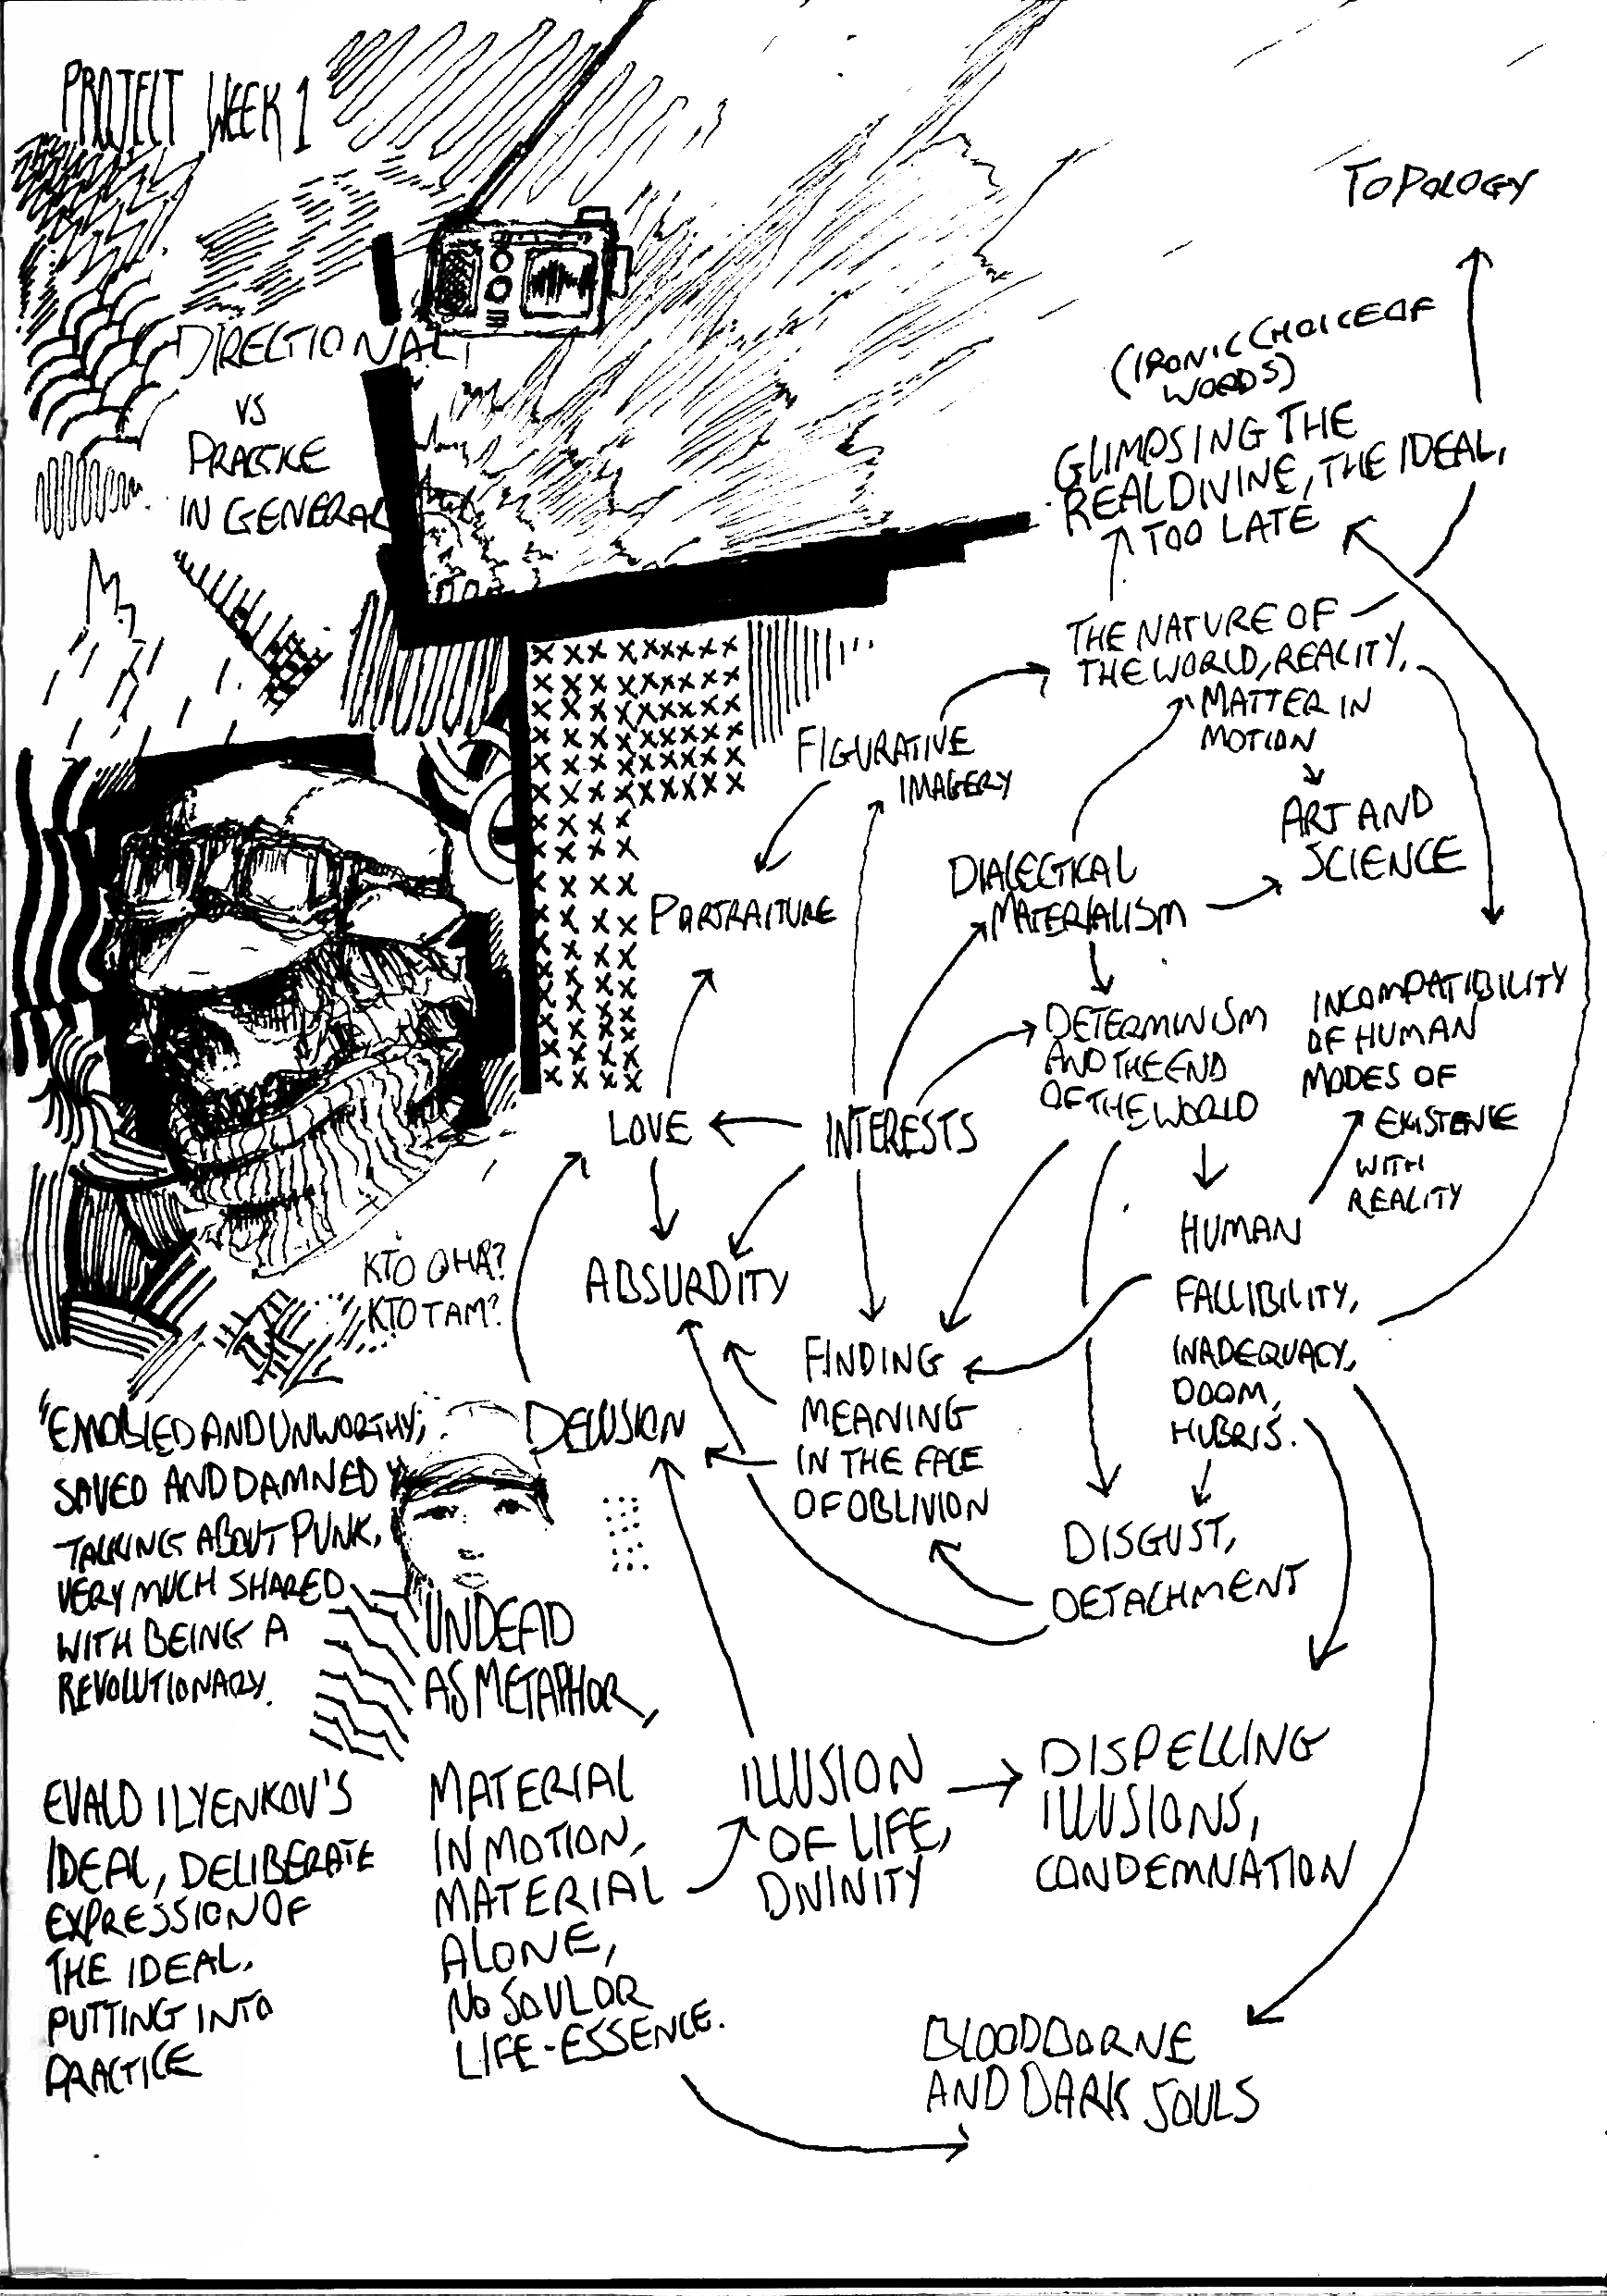 PROJECT WEEK 1
DIRECTIONAL,
VS
PRACTICE
IN GENERAL
TOPOLOGY
(IRONIC CHOICE OF
WORDS)
GLIMPSING THE
REAL DIVINE, THE IDEAL,
TOO LATE
THE NATURE OF
THE WORLD, REALITY,
MATTER IN
MOTION
FIGURATIVE
IMAGERY
ART AND
SCIENCE
DIALECTICAL
MATERIALISM
PORTRAITURE
DETERMINISM
AND THE END
OF THE WORLD
INCOMPATIBILITY
OF HUMAN
MODES OF
EXISTENCE
WITH
REALITY
LOVE
INTERESTS
HUMAN
FALLIBILITY,
INADEQUACY,
DOOM,
HUBRIS.
ABSURDITY
КТО ОНА?
КТО ТАМ?
FINDING
MEANING
IN THE FACE
OF OBLIVION
DELUSION
"ENOBLED AND UNWORTHY,
SAVED AND DAMNED"
TALKING ABOUT PUNK,
VERY MUCH SHARED
WITH BEING A
REVOLUTIONARY.
DISGUST,
DETACHMENT
UNDEAD
AS METAPHOR,
MATERIAL
IN MOTION,
MATERIAL
ALONE,
NO SOUL OR
LIFE-ESSENCE.
ILLUSION
OF LIFE,
DIVINITY
DISPELLING
ILLUSIONS,
CONDEMNATION
EVALD ILYENKOV'S
IDEAL, DELIBERATE
EXPRESSION OF
THE IDEAL.
PUTTING INTO
PRACTICE
BLOODBORNE
AND DARK SOULS